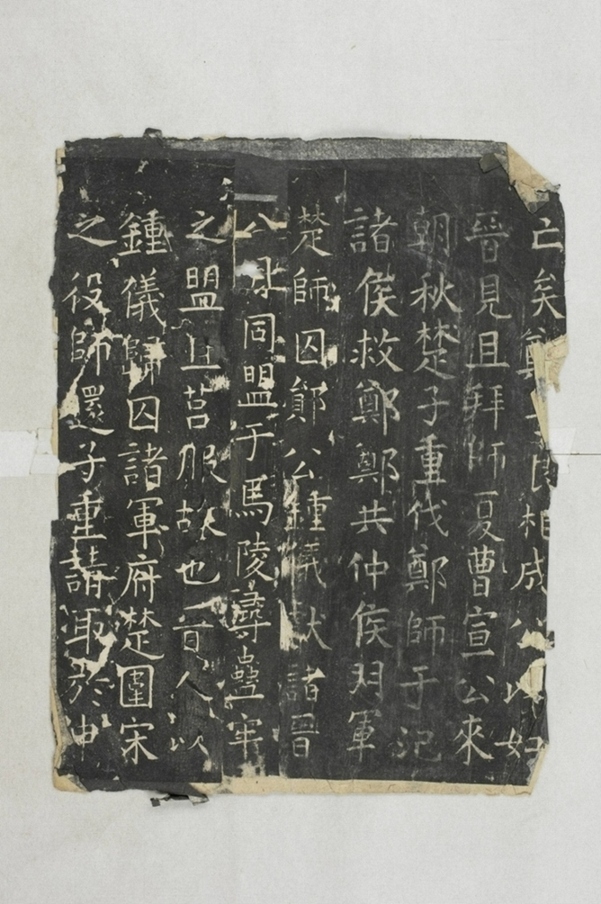 亡矣鄭子良相成公以如
晉見且拜師夏曹宣公來
朝秋楚子重伐鄭師于氾
諸侯救鄭鄭共仲侯羽軍
楚師囚鄖公鍾儀獻諸晉
八月同盟于馬陵尋蟲牢
之盟且莒服故也晉人以
鍾儀歸囚諸軍府楚圍宋
之役師還子重請取於申